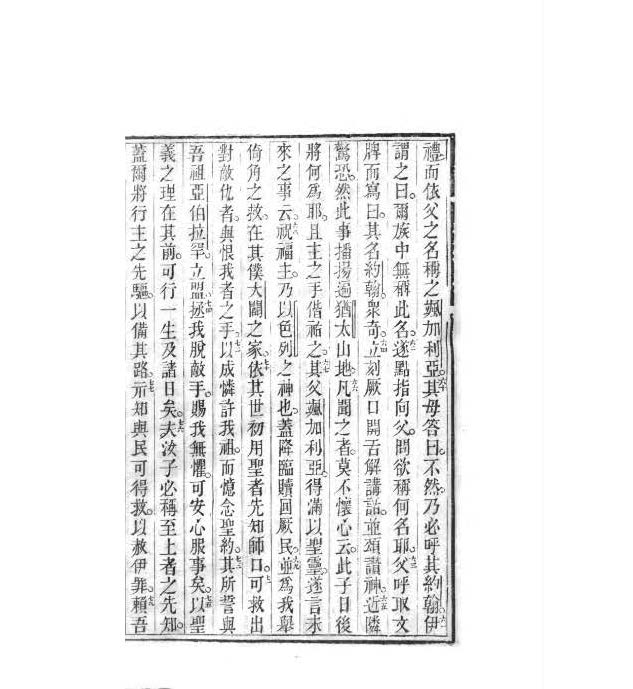 禮而依父之名稱之颯加利亞其母答曰不然乃必呼其約翰伊
謂之曰爾族中無稱此名遂點指向父問欲稱何名耶父呼取文
牌而寫曰其名約翰衆奇立刻厥口開舌解講話並頌讚神近隣
驚恐然此事播揚遍猶太山地凡聞之者莫不懷心云此子日後
將何爲耶且主之手偕祐之其父颯加利亞得滿以聖靈遂言未
來之事云祝福主乃以色列之神也蓋降臨贖回厥民並爲我舉
倚角之救在其僕大闢之家依其世初用聖者先知師口可救出
對敵仇者與恨我者之手以成憐許我祖而憶念聖約其所誓與
吾祖亞伯拉罕立盟拯我脫敵手賜我無懼可安心服事矣以聖
義之理在其前可行一生及諸日矣夫汝子必稱至上者之先知
蓋爾將行主之先驅以備其路示知與民可得救以赦伊罪賴吾